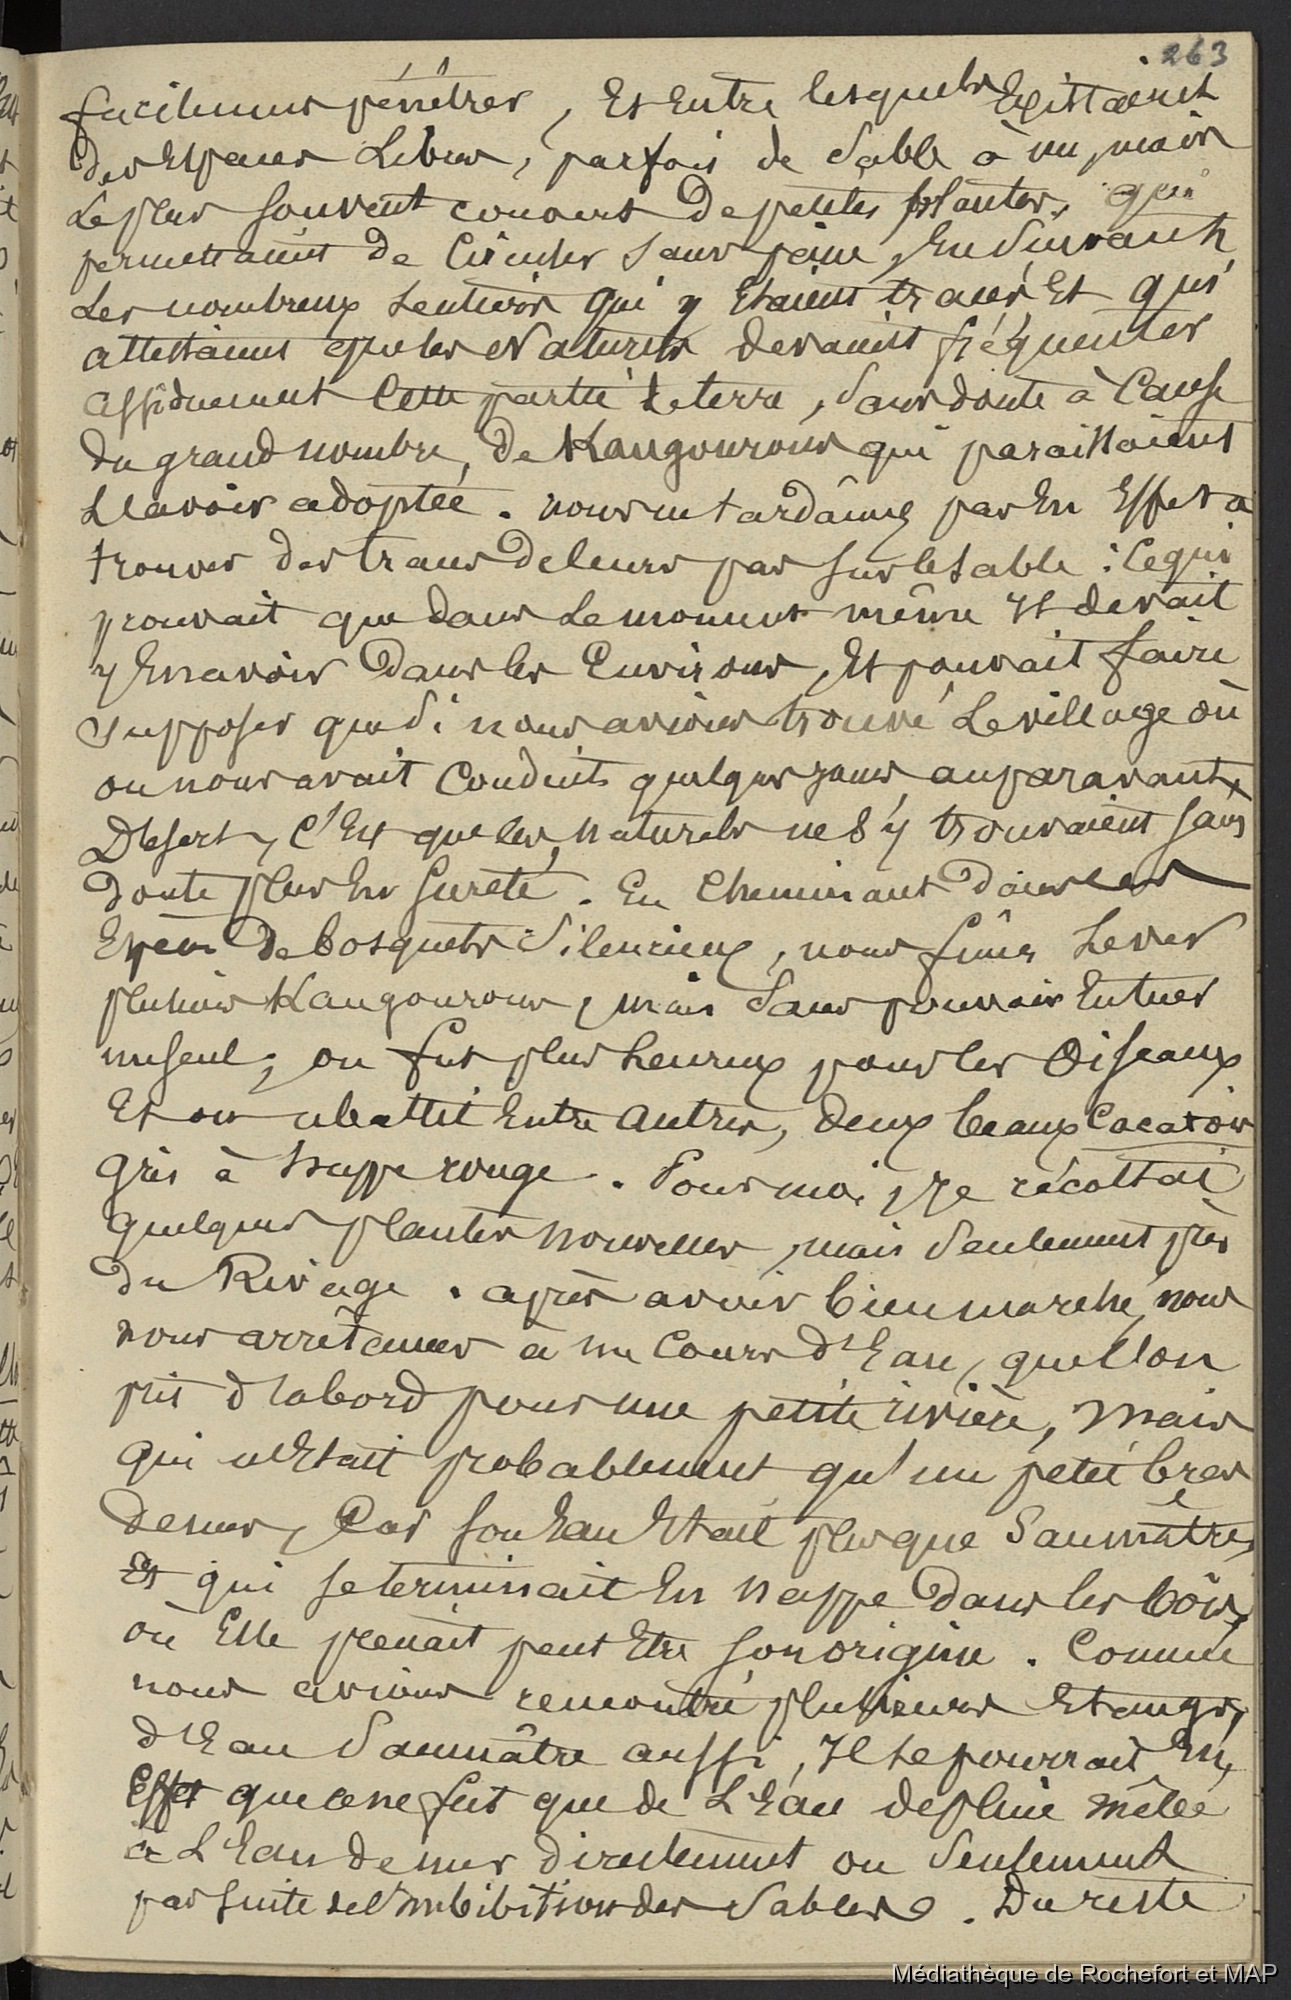 263
facilement pénétrer, Et Entre lesquels Existaient
des Espaces Libres, parfois de Sable à nu, mais
Le plus souvent couverts De petites plantes, qui
permettaient De Circuler sans peine, En Suivant
Les nombreux sentiers qui y Etaient tracés Et qui
attestaient que les Naturels devaient fréquenter
assiduement Cette partie de terre, Sans doute à Cause
du grand nombre, De Kangourous qui paraissaient
L'avoir adoptée. nous ne tardâmes pas En Effet a
trouver des traces de leurs pas sur le sable : Ce qui
prouvait que dans Le moment même Il devait
y En avoir Dans les Environs, Et pouvait faire
supposer que Si nous avions trouvé Le village où
on nous avait Conduits quelques jours auparavant,
Désert, C'Est que les naturels ne S'y trouvaient sans
doute plus En sureté. En Cheminant Dans ces
Espèces De bosquets Silencieux, nous fîmes Lever
plusieurs Kangourous, mais Sans pouvoir En tuer
un seul; on fut plus heureux pour les Oiseaux
Et on abattit Entre Autres, Deux beaux Cacatois
Gris à huppe rouge. Pour moi, Je récoltai
quelques plantes nouvelles, mais Seulement près
du Rivage. après avoir bien marché, nous
nous arrêtames à un Cours d'Eau, que l'on
prit d'abord pour une petite rivière, Mais
qui n'Etait probablement qu'un petit bras
de mer, Car son Eau Etait plus que Saumâtre,
Et qui se terminait En nappe Dans les bois,
où Elle prenait peut Etre son origine. Comme
nous avions rencontré plusieurs Etangs,
d'Eau Saumâtre aussi, Il se pourrait En,
Effet que ce ne fut que de L'Eau de pluie mêlée
à L'Eau de mer directement ou Seulement
par suite de l'imbibition des Sables. Du reste
Médiathèque de Rochefort et MAP